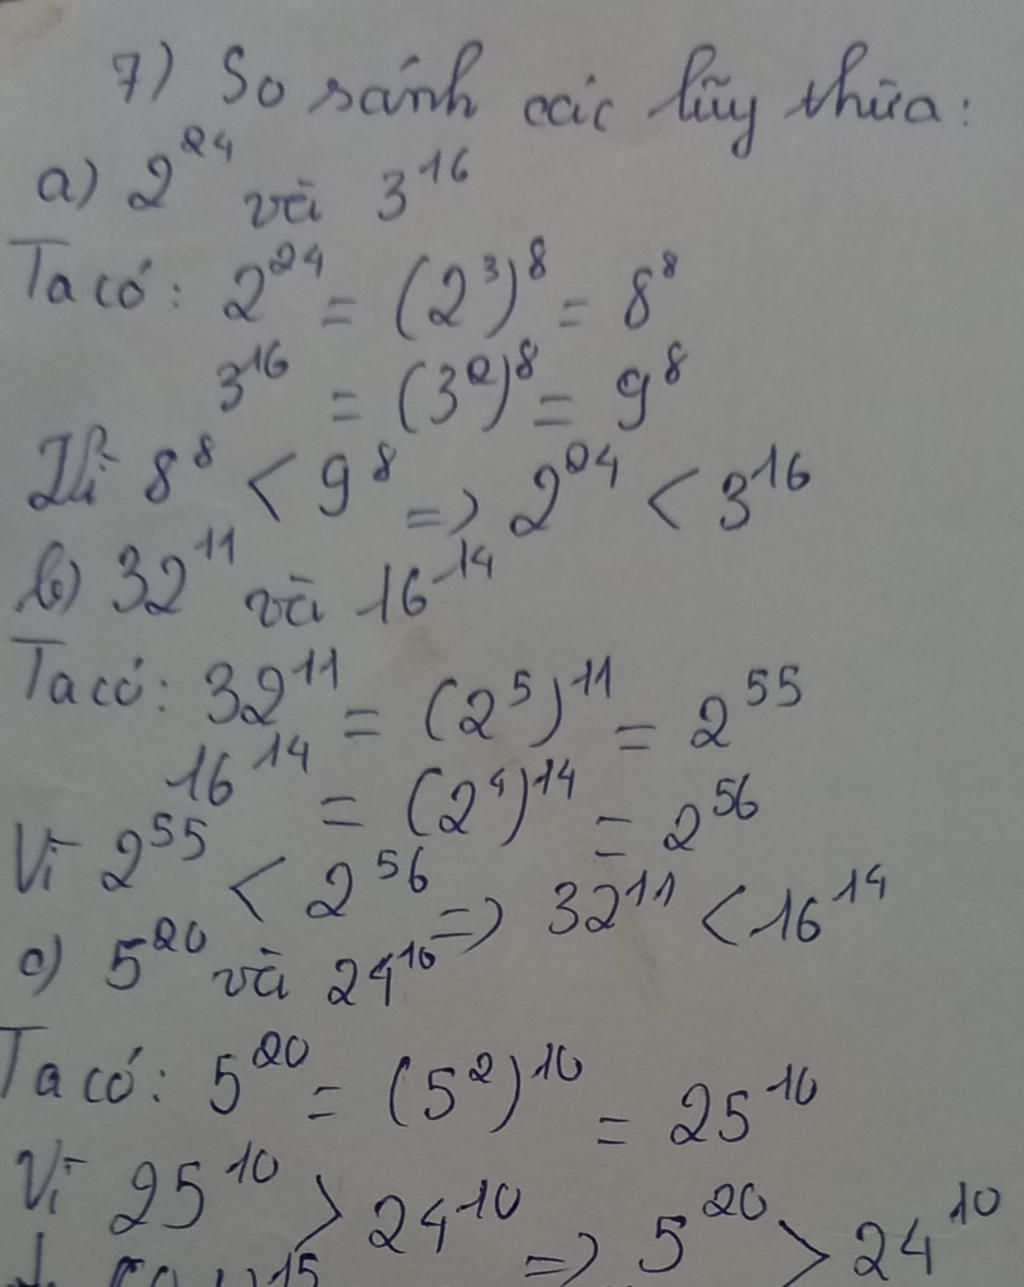 7) So sánh các lũy thừa:
a) 2²⁴ và 3¹⁶
Ta có: 2²⁴ = (2³)⁸ = 8⁸
3¹⁶ = (3²)⁸ = 9⁸
Vì 8⁸ < 9⁸ => 2²⁴ < 3¹⁶
b) 32¹¹ và 16¹⁴
Ta có: 32¹¹ = (2⁵)¹¹ = 2⁵⁵
16¹⁴ = (2⁴)¹⁴ = 2⁵⁶
Vì 2⁵⁵ < 2⁵⁶ => 32¹¹ < 16¹⁴
c) 5²⁰ và 24¹⁰
Ta có: 5²⁰ = (5²)¹⁰ = 25¹⁰
Vì 25¹⁰ > 24¹⁰ => 5²⁰ > 24¹⁰